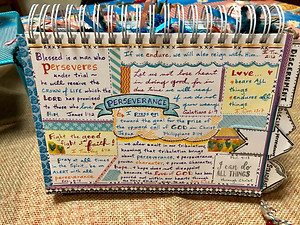 Blessed is a man who
PERSEVERES
under trial ~
he will receive the
CROWN OF LIFE which the
LORD has promised
to those who love
Him. James 1:12
If we endure, we will also reign with Him
Let us not lose heart
in doing good, for in
due time we will reap
if we do not
grow weary
PERSEVERANCE
Love
bears All
things
all things
I press on
toward the goal for the prize of
the upward call of GOD in Christ
Jesus. Philippians 3:14
Fight the good
fight of faith!
pray at all times
in the Spirit, be on
the ALERT with all
perseverance
we also exult in our tribulations,
knowing that tribulation brings
about perseverance, & perseverance,
character; & proven character,
hope, & hope does not disappoint,
because the love of GOD has been
poured out within our hearts through
I
can do
ALL THINGS
through Christ